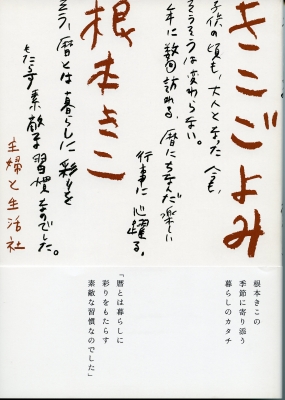 きこごよみ
子供の頃も、大人となった今も、
そうそうは変わらない。
年に数回訪れる、暦にちなんだ楽しい
行事に心躍る。
根本きこ
そう、暦とは暮らしに彩りを
もたらす素敵な習慣なのでした。
主婦と生活社
根本きこの
季節に寄り添う
暮らしのカタチ
「暦とは暮らしに
彩りをもたらす
素敵な習慣なのでした」